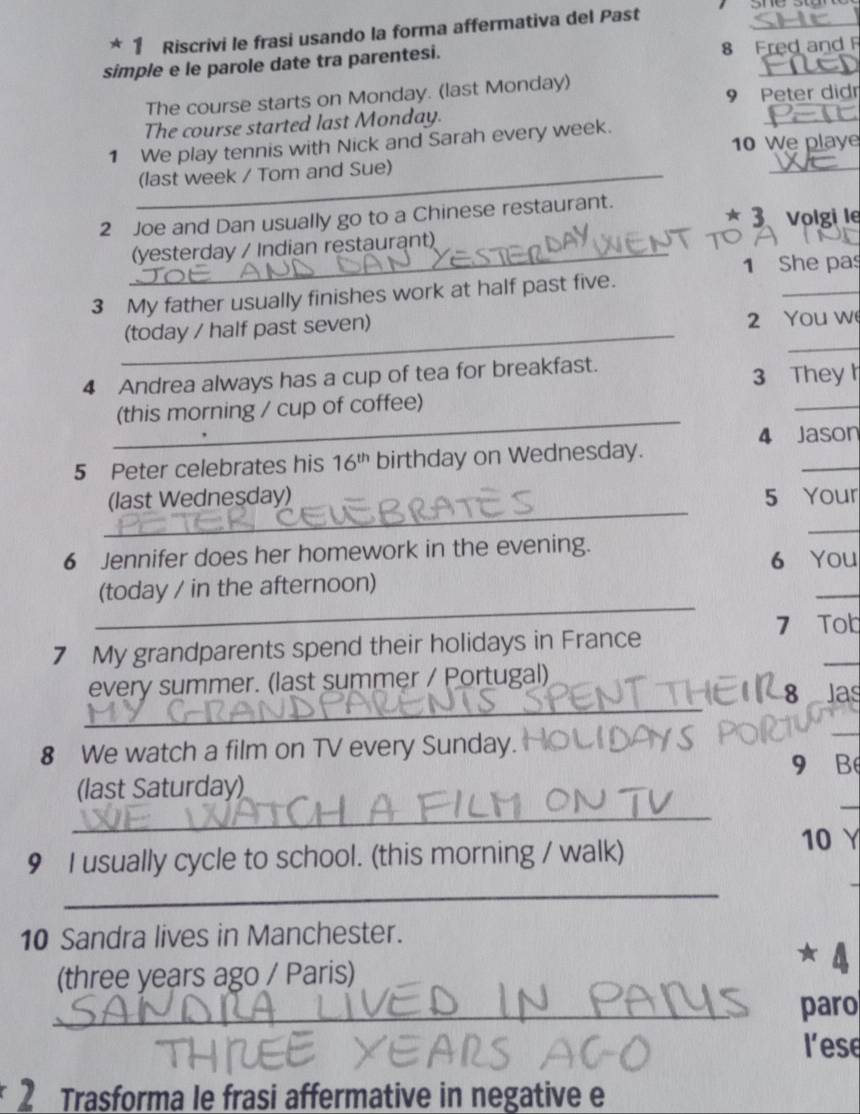 * 1 Riscrivi le frasi usando la forma affermativa del Past
simple e le parole date tra parentesi.
The course starts on Monday. (last Monday)
The course started last Monday.
1 We play tennis with Nick and Sarah every week.
(last week / Tom and Sue)
2 Joe and Dan usually go to a Chinese restaurant.
(yesterday / Indian restaurant)
JOE AND DAN YESTERDAY WENT TO A IND
3 My father usually finishes work at half past five.
(today / half past seven)
4 Andrea always has a cup of tea for breakfast.
(this morning / cup of coffee)
5 Peter celebrates his 16th birthday on Wednesday.
(last Wednesday)
PETER CELEBRATES
6 Jennifer does her homework in the evening.
(today / in the afternoon)
7 My grandparents spend their holidays in France
every summer. (last summer / Portugal)
MY GRANDPARENTS SPENT THEIR
HOLIDAYS PORTUGA
8 We watch a film on TV every Sunday.
(last Saturday)
WE WATCH A FILM ON TV
9 I usually cycle to school. (this morning / walk)
10 Sandra lives in Manchester.
(three years ago / Paris)
SANDRA LIVED IN PARIS
THREE YEARS AGO
2 Trasforma le frasi affermative in negative e
SHE
8 Fred and
FRED
9 Peter didn
PETE
10 We playe
WE
* 3 Volgi le
1 She pas
2 You we
3 They h
4 Jason
5 Your
6 You
7 Tob
8 Jas
9 Be
10 Y
* 4
paro
l'ese